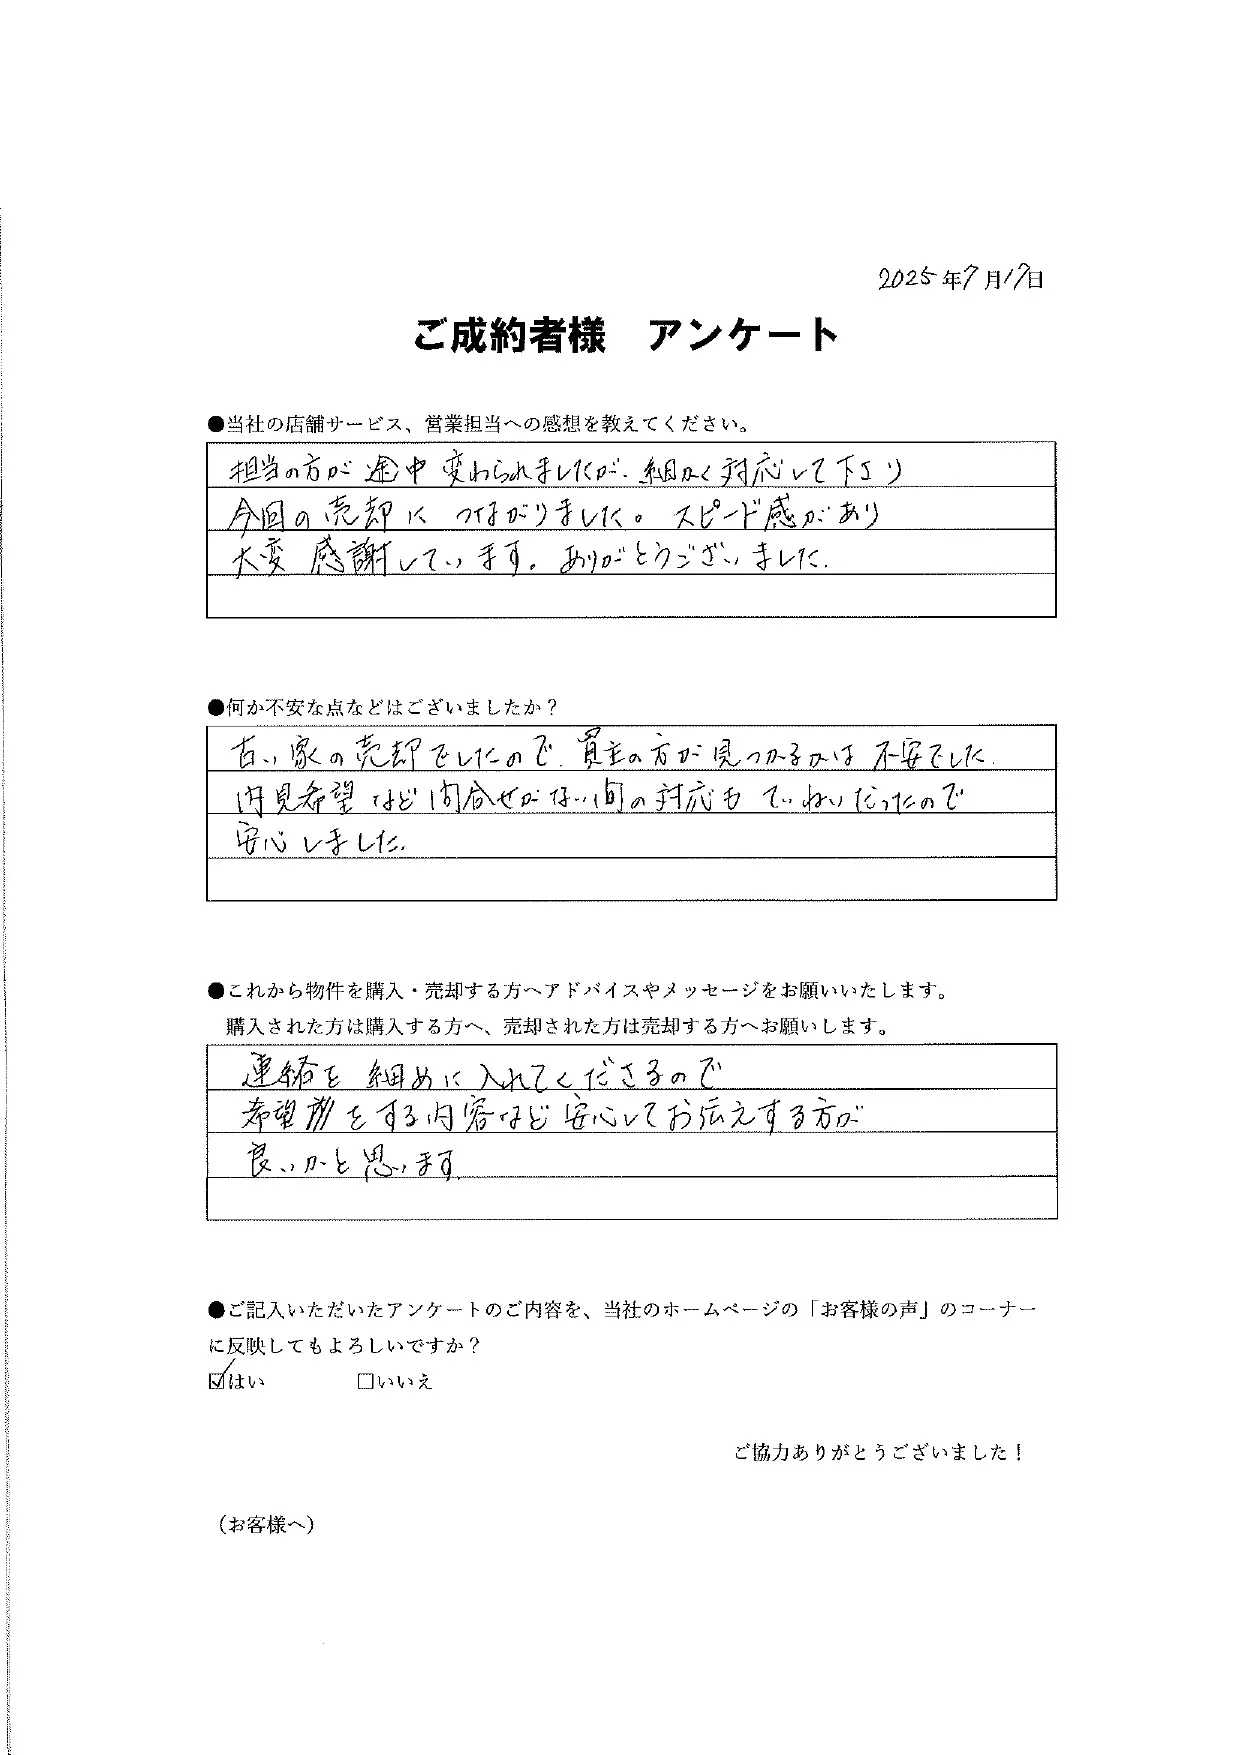 2025年7月17日
ご成約者様 アンケート
●当社の店舗サービス、営業担当への感想を教えてください。
担当の方が途中変わられましたが、細かく対応して下さり
今回の売却につながりました。スピード感があり
大変感謝しています。ありがとうございました.
●何か不安な点などはございましたか？
古い家の売却でしたので、買主の方が見つかるかは不安でした.
内見希望など問合せがない間の対応もていねいだったので
安心しました.
●これから物件を購入・売却する方へアドバイスやメッセージをお願いいたします。
購入された方は購入する方へ、売却された方は売却する方へお願いします。
連絡を細めに入れてくださるので
希望をする内容など安心してお伝えする方が
良いかと思います.
●ご記入いただいたアンケートのご内容を、当社のホームページの「お客様の声」のコーナー
に反映してもよろしいですか？
☑はい □いいえ
ご協力ありがとうございました！
（お客様へ）